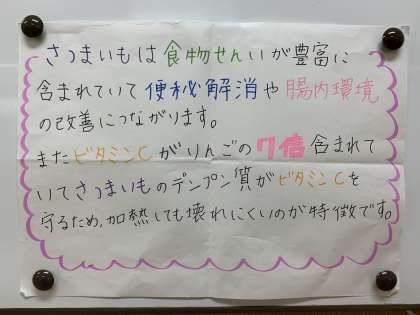 さつまいもは食物せんいが豊富に
含まれていて便秘解消や腸内環境
の改善につながります。
またビタミンCがりんごの7倍含まれて
いてさつまいものデンプン質がビタミンCを
守るため,加熱しても壊れにくいのが特徴です。